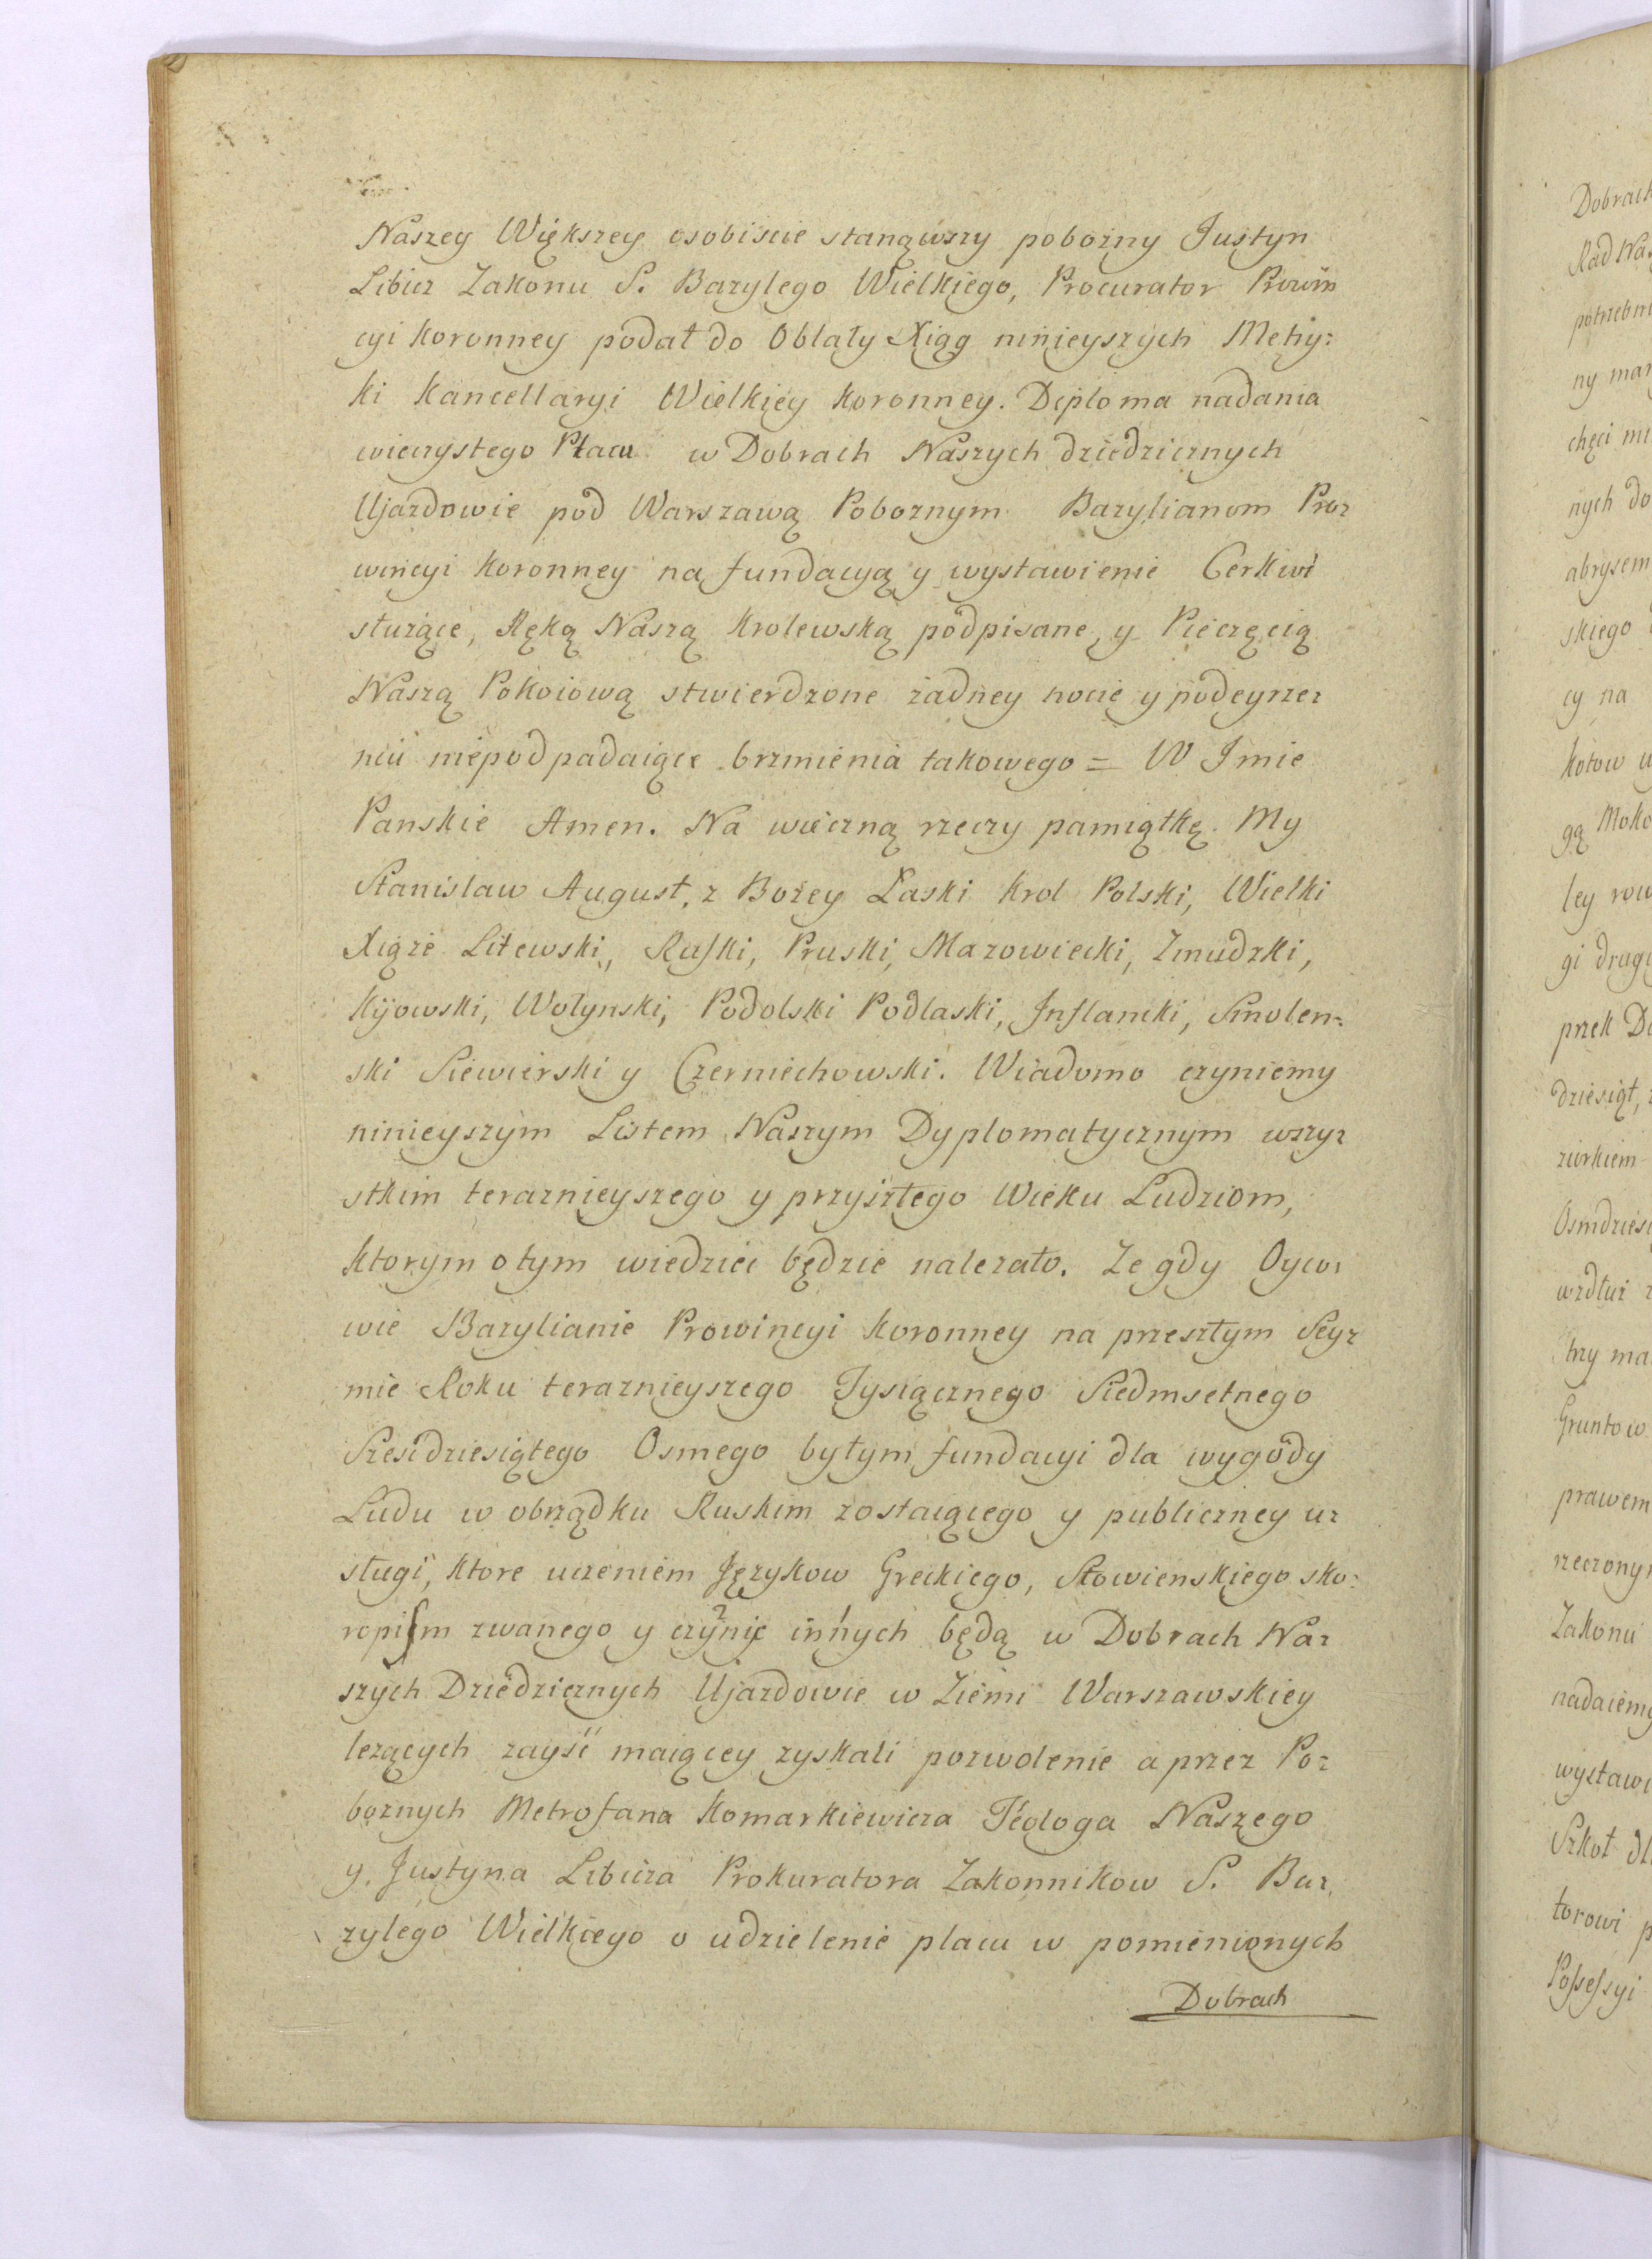 Naszey Większey osobiscie stanąwszy pobożny Justyn
Libicz Zakonu S. Bazylego Wielkiego, Procurator Prowin
cyi Koronney podał do Oblaty Xiąg ninieyszych Metry:
ki Kancellaryi Wielkiey Koronney. Diploma nadania
wieczystego Placu w Dobrach Naszych dziedzicznych
Ujazdowie pod Warszawą Poboznym Bazylianom Pro:
wincyi Koronney na fundacyą y wystawienie Cerkwi
służące, Ręką Naszą Krolewską podpisane, y Pieczęcią
Naszą Pokoiową stwierdzone żadney nocie y podeyrze:
niu niepodpadaiące brzmienia takowego = W Imie
Panskie Amen. Na wieczną rzeczy pamiątkę. My
Stanisław August, z Bożey Łaski Krol Polski, Wielki
Xiąże Litewski, Ruski, Pruski, Mazowiecki, Zmudzki,
Kijowski, Wołynski, Podolski Podlaski, Inflancki, Smolen:
ski Siewierski y Czerniechowski. Wiadomo czyniemy
ninieyszym Listem Naszym Dyplomatycznym wszy:
stkim teraznieyszego y przyszłego Wieku Ludziom,
Ktorym o tym wiedzieć będzie nalezało. Ze gdy Oyco:
wie Bazylianie Prowincyi Koronney na przeszłym Sey:
mie Roku teraznieyszego Tysiącznego Siedmsetnego
Sześćdziesiątego Osmego byłym fundacyi dla wygody
Ludu w obrządku Ruskim zostaiącego y publiczney u:
sługi, ktore uczeniem Językow Greckiego, Słowienskiego sko:
ropism zwanego y czynić innych będą w Dobrach Na:
szych Dziedzicznych Ujazdowie w Ziemi Warszawskiey
leżących zayść maiącey zyskali pozwolenie a przez Po:
boznych Metrofana Komarkiewicza Teologa Naszego
y. Justyna Libicza Prokuratora Zakonnikow S. Ba:
zylego Wielkiego o udzielenie placu w pomienionych
Dobrach